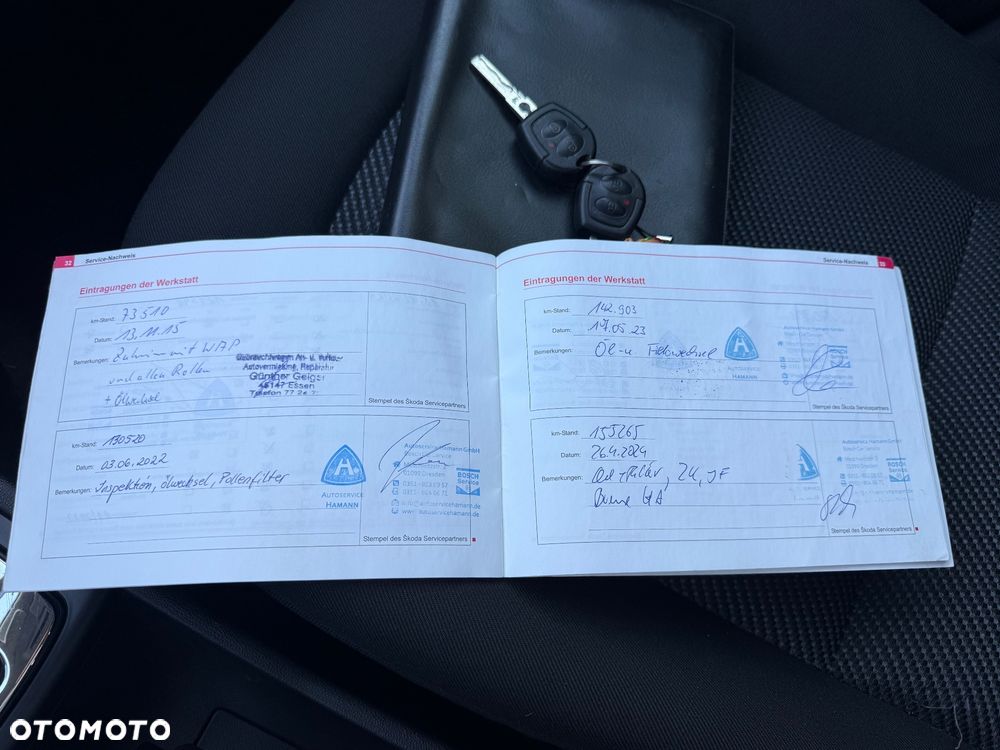 32
Service-Nachweis
Eintragungen der Werkstatt
km-Stand: 73510
Datum: 13.11.15
Bemerkungen: Zahnriemen mit WAP
und allen Rollen
+ Ölwechsel
Autovermietung, Reparatur
Günther Geiger
45147 Essen
Telefon 77 26
Stempel des Škoda Servicepartners
km-Stand: 130520
Datum: 03.06.2022
Bemerkungen: Inspektion, Ölwechsel, Pollenfilter
AUTOSERVICE
HAMANN
Autoservice Hamann GmbH
Bosch Car Service
Dresden
www.autoservicehamann.de
BOSCH
Service
Stempel des Škoda Servicepartners
Service-Nachweis
33
Eintragungen der Werkstatt
km-Stand: 142.903
Datum: 17.05.23
Bemerkungen: Öl-u Filterwechsel
AUTOSERVICE
HAMANN
BOSCH
Service
Stempel des Škoda Servicepartners
km-Stand: 155265
Datum: 26.4.2024
Bemerkungen:
Autoservice Hamann GmbH
Bosch Car Service
Dresden
BOSCH
Service
Stempel des Škoda Servicepartners
OTOMOTO